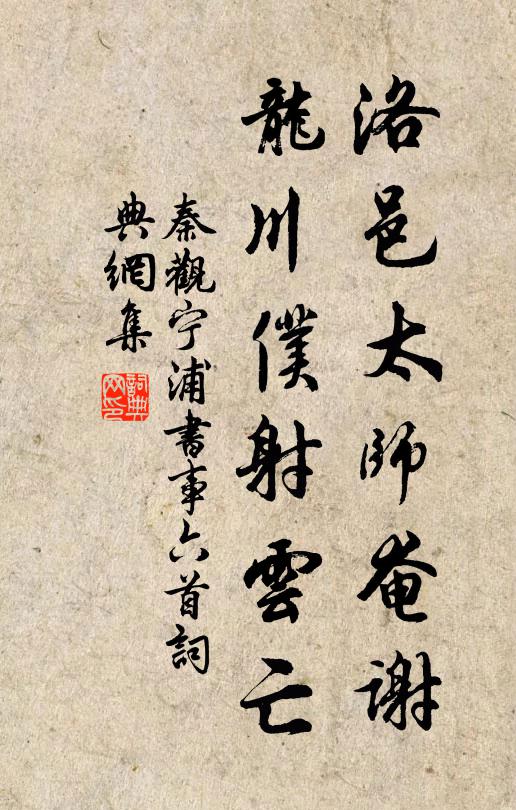 洛邑太師奄謝
龍川僕射雲亡
秦觀宁浦書事六首詞
典網集
詞典网印